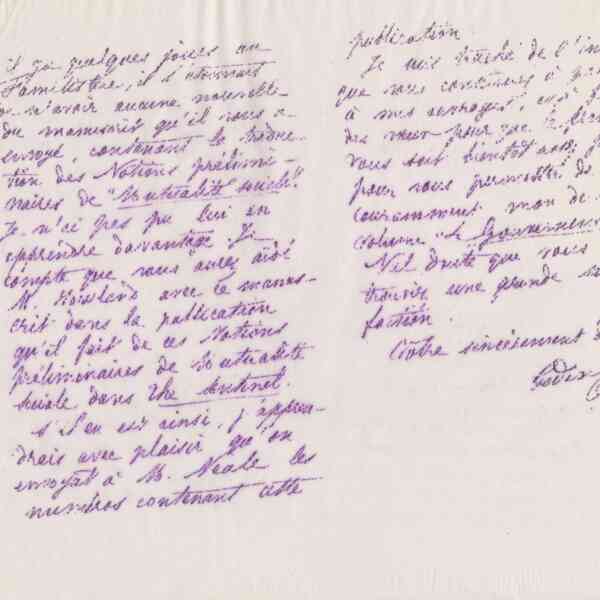 il y a quelques jours au
Familistère, il s'étonnait
de n'avoir aucune nouvelle
du manuscrit qu'il vous a
envoyé, contenant la traduc-
tion des Notions prélimi-
naires de "Mutualité sociale".
Je n'ai pas pu lui en
apprendre davantage. Je
compte que vous aurez aidé
M. Howland avec le manus-
crit dans la publication
qu'il fait de ces Notions
préliminaires de Mutualité
sociale dans The Sentinel.
S'il en est ainsi, j'appren-
drais avec plaisir qu'on
envoyât à M. Neale les
numéros contenant cette
publication
Je suis touché de l'in
que vous continuez à
à mes ouvrages,
des vœux pour que
vous soit bientôt
pour vous permettre de
couramment mon de
volume "Le Gouvernemen
Nul doute que vous
trouviez une grande
faction.
Votre sincèrement
Godin